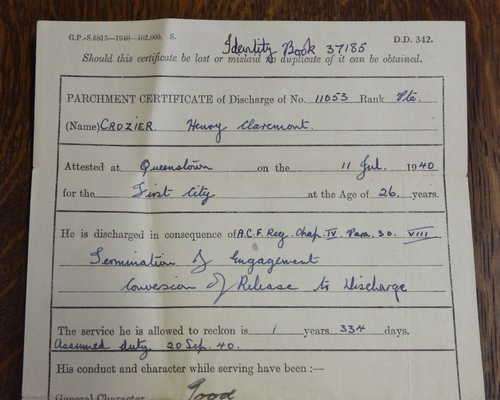 G.P.-S.6815—1940-102,000. S. D.D. 342.
Identity Book 37185
Should this certificate be lost or mislaid no duplicate of it can be obtained.
PARCHMENT CERTIFICATE of Discharge of No. 11053 Rank Pte.
(Name) CROZIER Henry Claremont.
Attested at Queenstown on the 11 Jul. 1940
for the First City at the Age of 26 years.
He is discharged in consequence of A.C.F. Reg. Chap. IV. Para. 30. VIII
Termination of Engagement
Conversion of Release to Discharge
The service he is allowed to reckon is 1 years 334 days.
Assumed duty 20 Sep. 40.
His conduct and character while serving have been :—
General Character Good